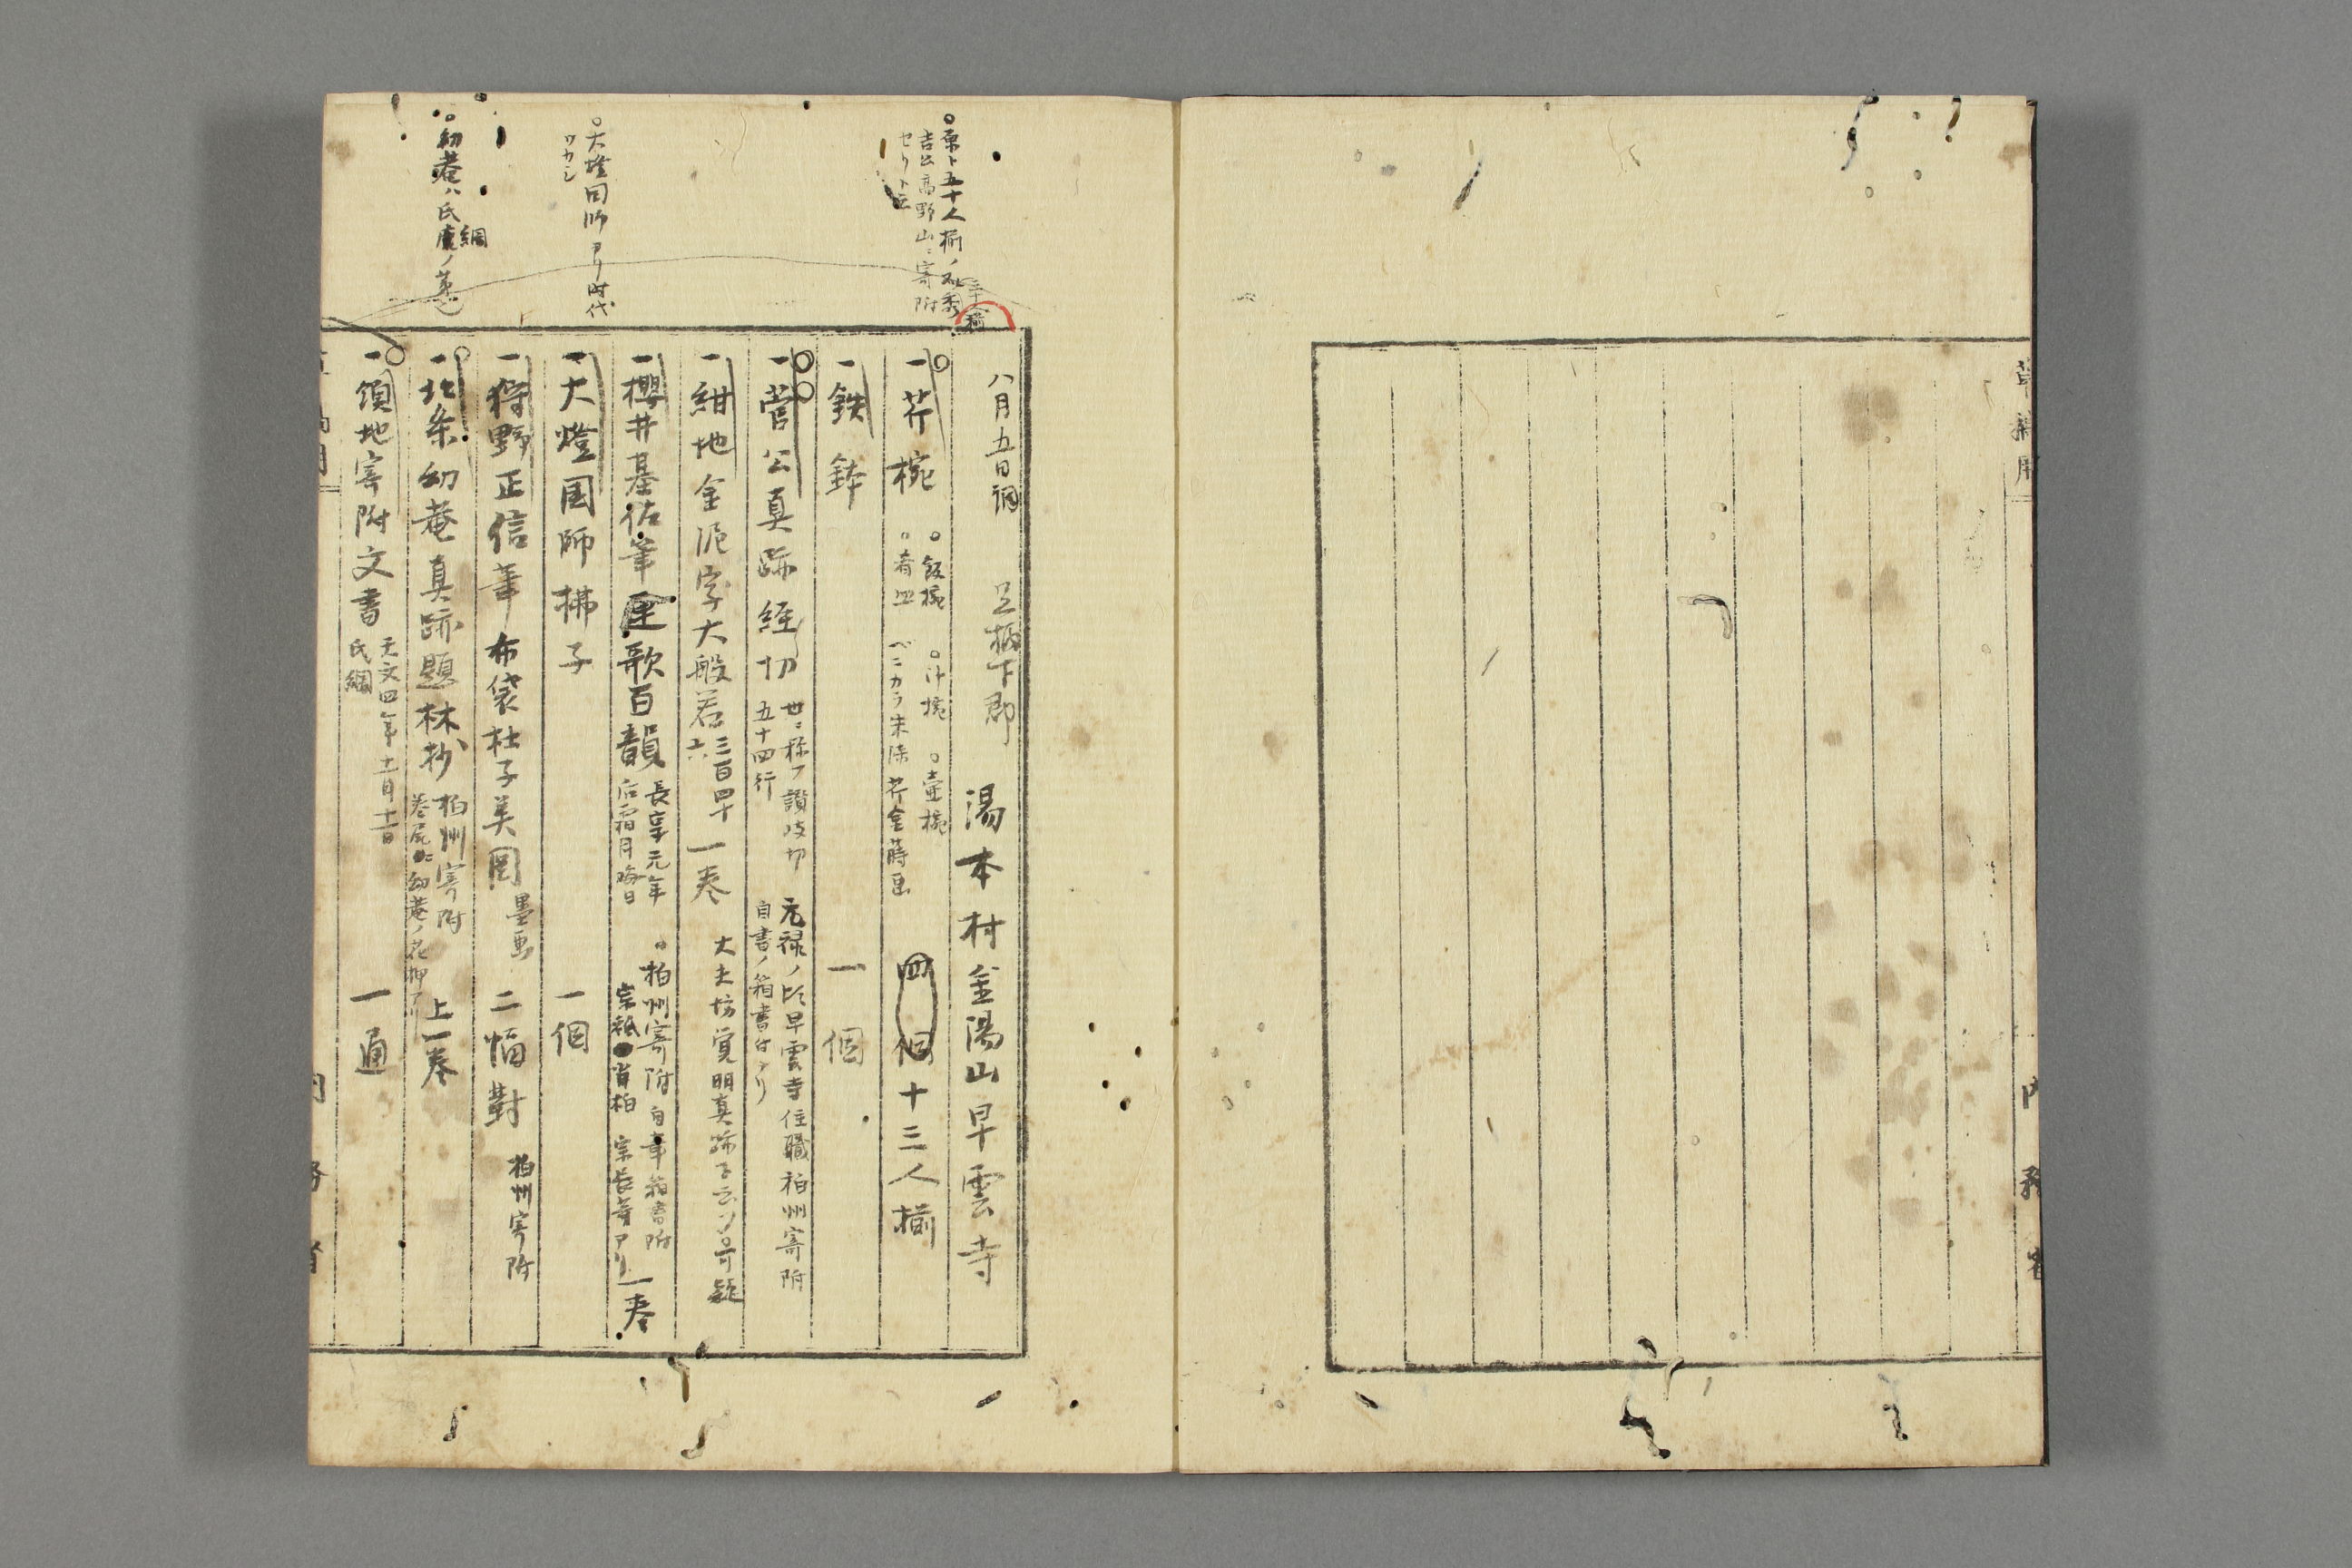 草稿用
内務省
○原ト五十人揃ノ処秀
吉公高野山ニ寄附
セリト云
○大燈国師ヨリ時代
ワカシ
○幼菴ハ氏康ノ弟也
綱
八月五日調 足柄下郡 湯本村金湯山早雲寺
一芹椀 ○飯椀 ○汁椀 ○壷椀
○肴皿 ベニカラ朱漆芹金蒔画 四個十三人揃
一鉄鉢 一個
一菅公真跡経切 世ニ称フ讃岐切 元禄ノ比早雲寺住職柏州寄附
五十四行 自書ノ箱書付アリ
一紺地金泥字大般若 三百四十
六 一巻 大夫坊覚明真跡ト云ツ可疑
一櫻井基佐筆連歌百韻 長享元年
后霜月晦日 ○柏州寄附自筆箱書附
宗祇 肖柏 宗長等アリ 一巻
一大燈国師拂子 一個
一狩野正信筆布袋杜子美図 墨画 二幅對 柏州寄附
一北条幼菴真跡題林抄 柏州寄附
巻尾ニ幼菴ノ花押アリ 上一巻
一領地寄附文書 天文四年十一月十一日
氏綱 一通
内務省